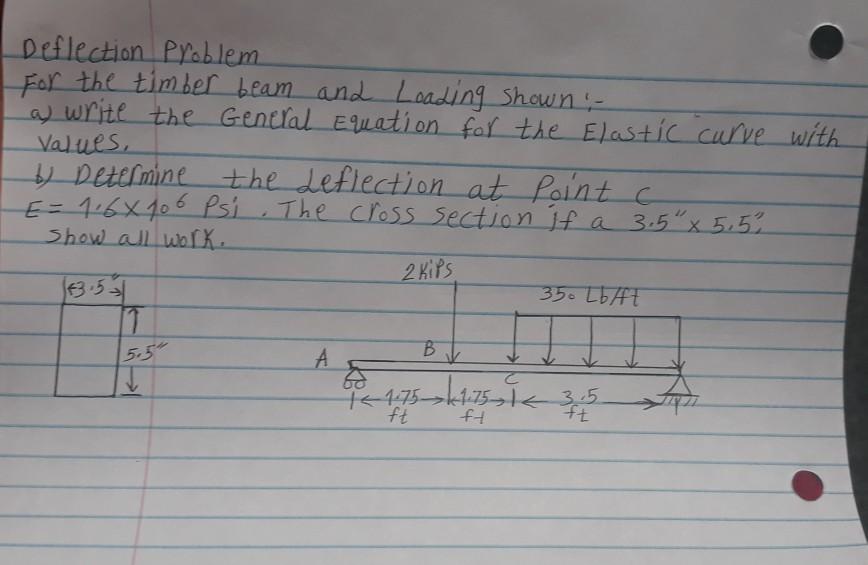 Deflection Problem
For the timber beam and Loading shown :-
a) write the General Equation for the Elastic curve with
Values.
b) Determine the deflection at Point C
E = 1.6 x 10⁶ Psi . The cross section if a 3.5" x 5.5".
Show all work.
2 Kips
3.5"
350 Lb/ft
5.5"
A
B
C
1.75 ft
1.75 ft
3.5 ft